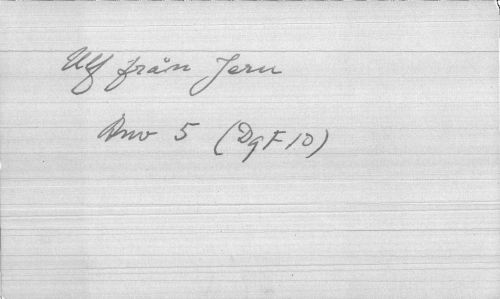 Ulf från Jern
Anv 5 (DgF 10)